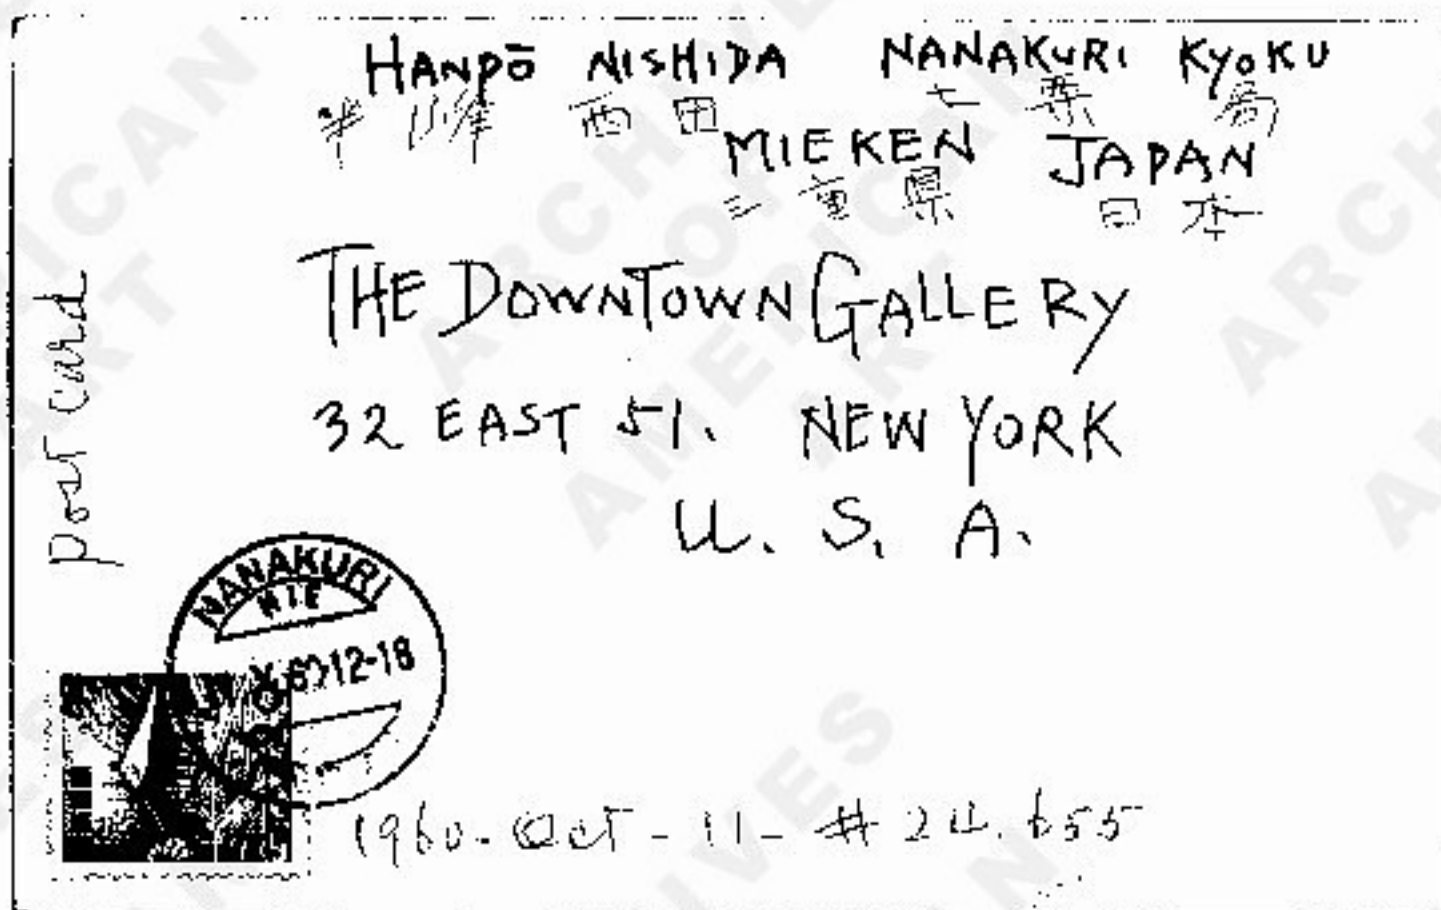 HANPŌ NISHIDA NANAKURI KYOKU
半峰 西田 七栗局
MIEKEN JAPAN
三重県 日本
THE DOWNTOWN GALLERY
32 EAST 51. NEW YORK
U. S. A.
post card
NANAKURI
MIE
60 12-18
1960. Oct - 11 - # 24.655
ARCHIVES OF AMERICAN ART